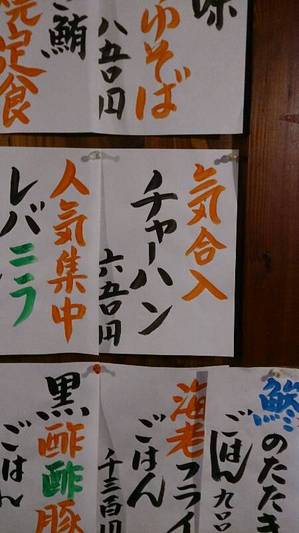 味
ゆそば
八五〇円
鮪
焼定食
気合入
チャーハン
六五〇円
人気集中
レバニラ
鯵のたたき
ごはん 九〇
海老フライ
ごはん
千三百円
黒酢酢豚
ごはん